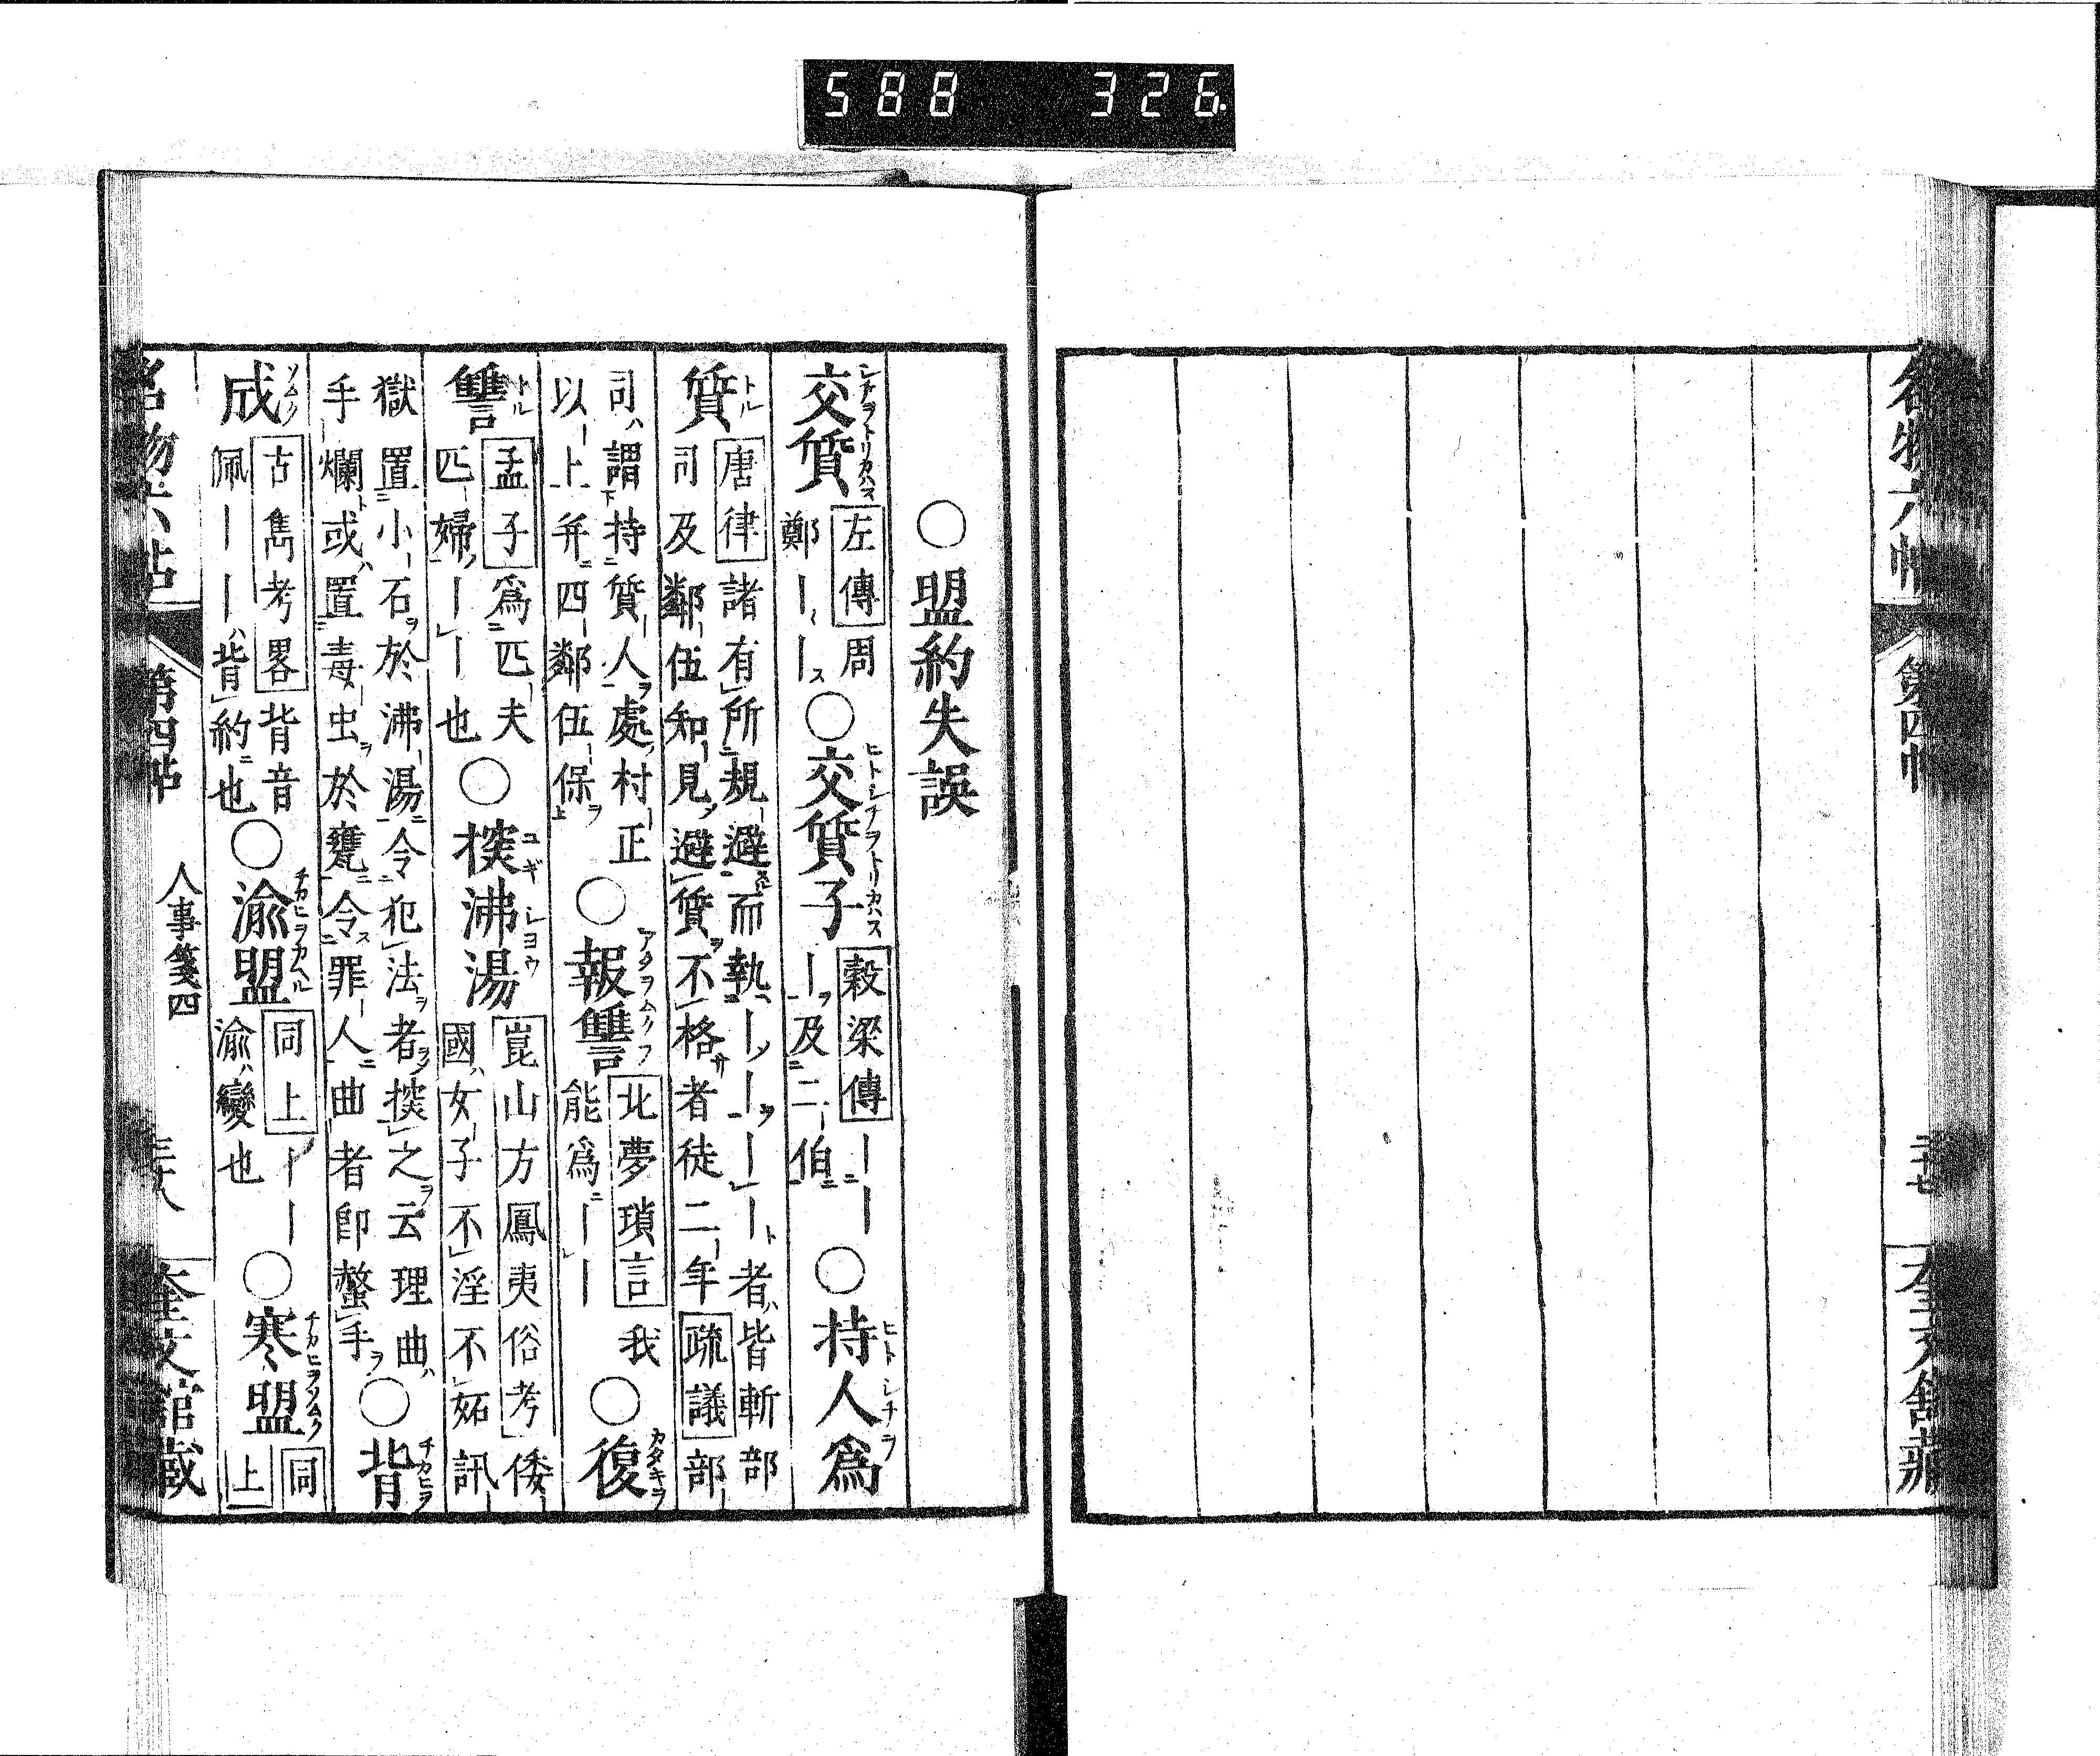 588 326
名物六帖 第四帖 奎文舘藏
○盟約失誤
交質 左傳周鄭｜｜ ○交質子 穀梁傳｜｜｜及二伯 ○持人爲
質 唐律諸有所規避而執｜｜｜｜者皆斬部司及鄰伍知見避質不格者徒二年 疏議 部
司謂持質人處村正以上并四鄰伍保 ○報讐 北夢瑣言 我能爲｜｜ ○復
讐 孟子 爲匹夫匹婦｜｜也 ○探沸湯 崑山方鳳夷俗考 倭國女子不淫不妬訊
獄置小石於沸湯令犯法者探之云理曲手爛或置毒虫於甕令罪人曲者即螫手 ○背
成 古雋考畧 背音佩｜｜背約也 ○渝盟 同上 ｜｜渝變也 ○寒盟 同上
名物六帖 第四帖 人事箋四 奎文舘藏